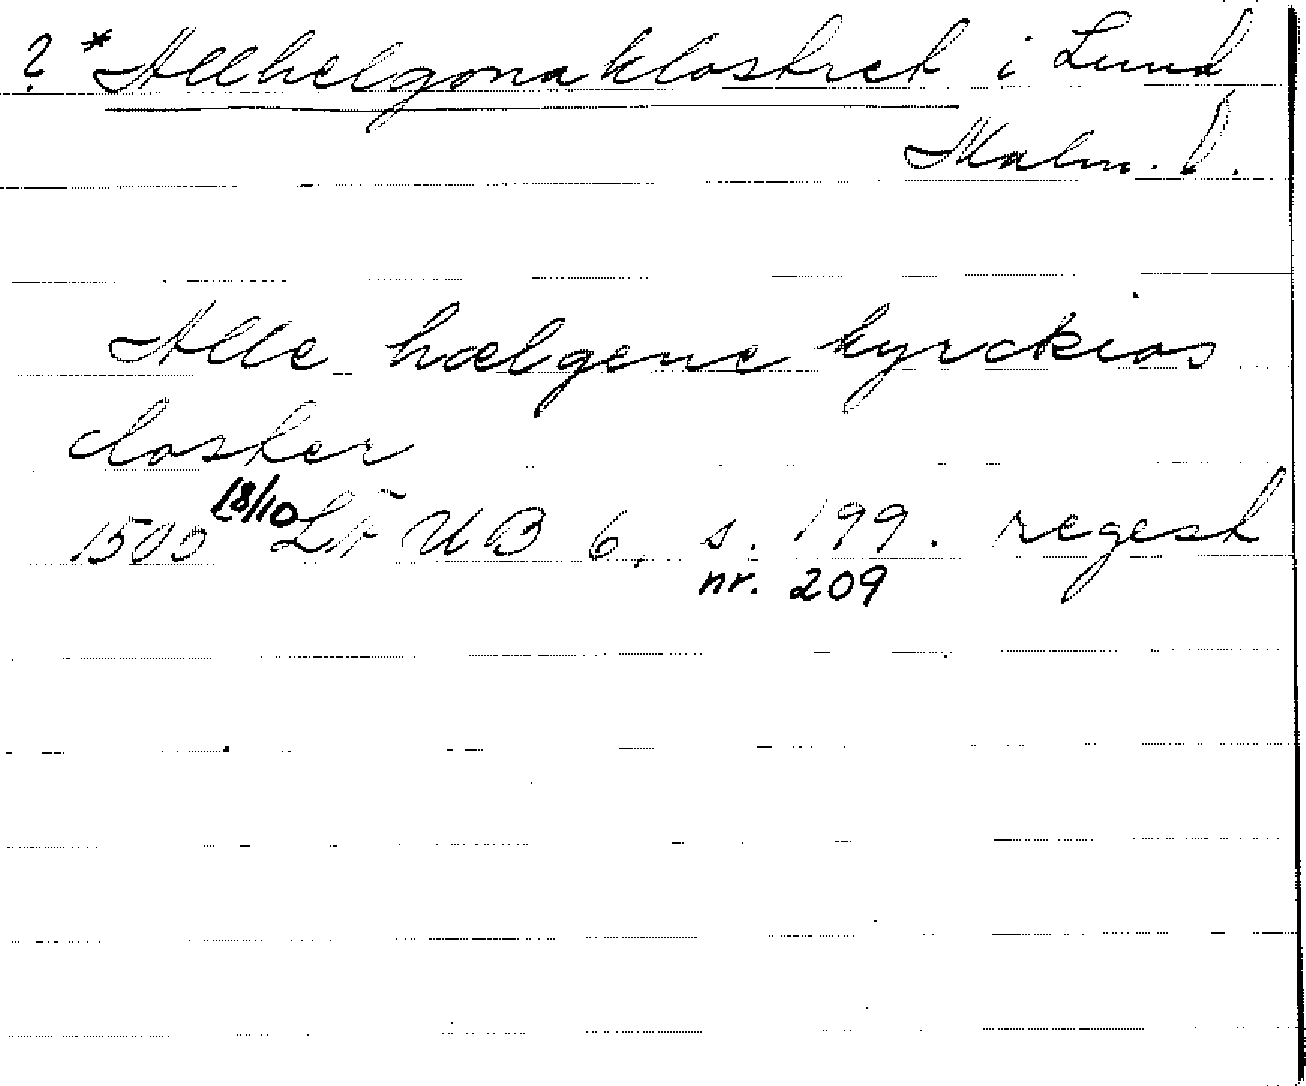 ? *Allhelgonaklostret i Lund
Malm. l.
Alle hælgene kyrckios
closter
1505 18/10 LÄUB 6, s. 199. regest
nr. 209